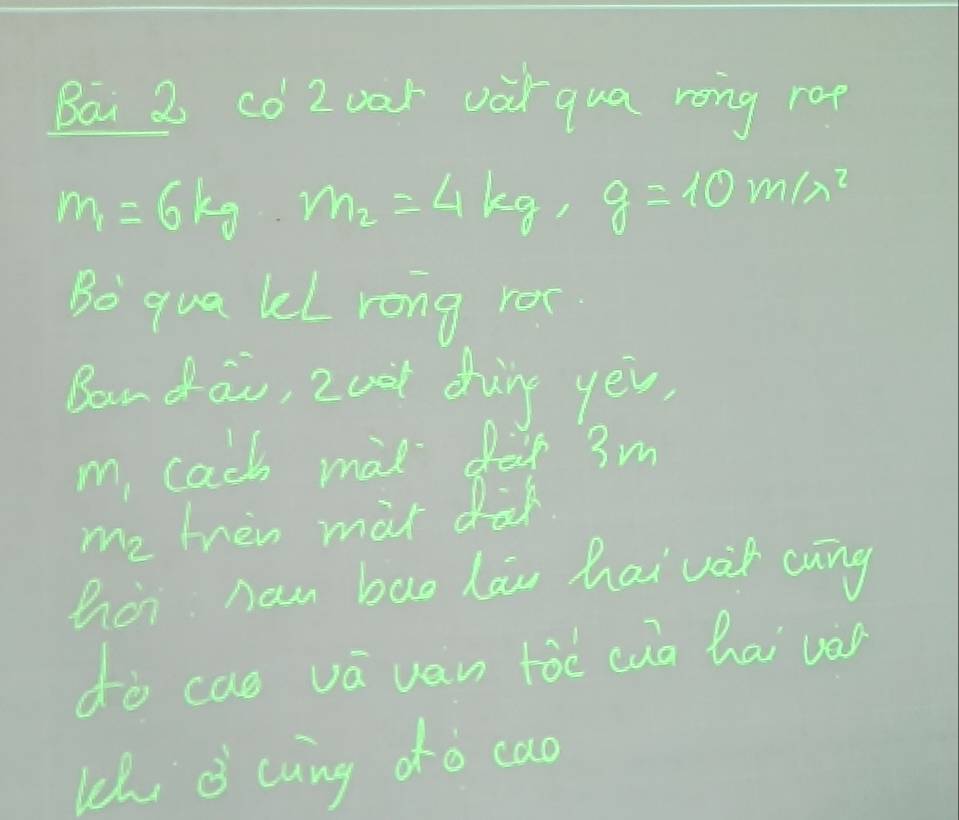 Bài 2 có 2 vật vắt qua ròng rọc
m₁ = 6 kg m₂ = 4 kg, g = 10 m/s²
Bỏ qua kL ròng rọc.
Ban đầu, 2 vật đứng yên,
m₁ cách mặt đất 3m
m₂ trên mặt đất.
hỏi: sau bao lâu hai vật cùng
độ cao và vận tốc của hai vật
khi ở cùng độ cao